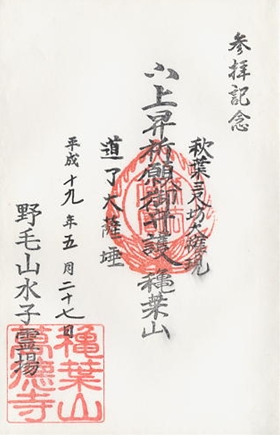 参拝記念
秋葉三尺坊大権現
八上昇祈願御守護 穐葉山
道了大薩埵
平成十九年五月二十七日
野毛山水子霊場
穐葉山
萬徳寺